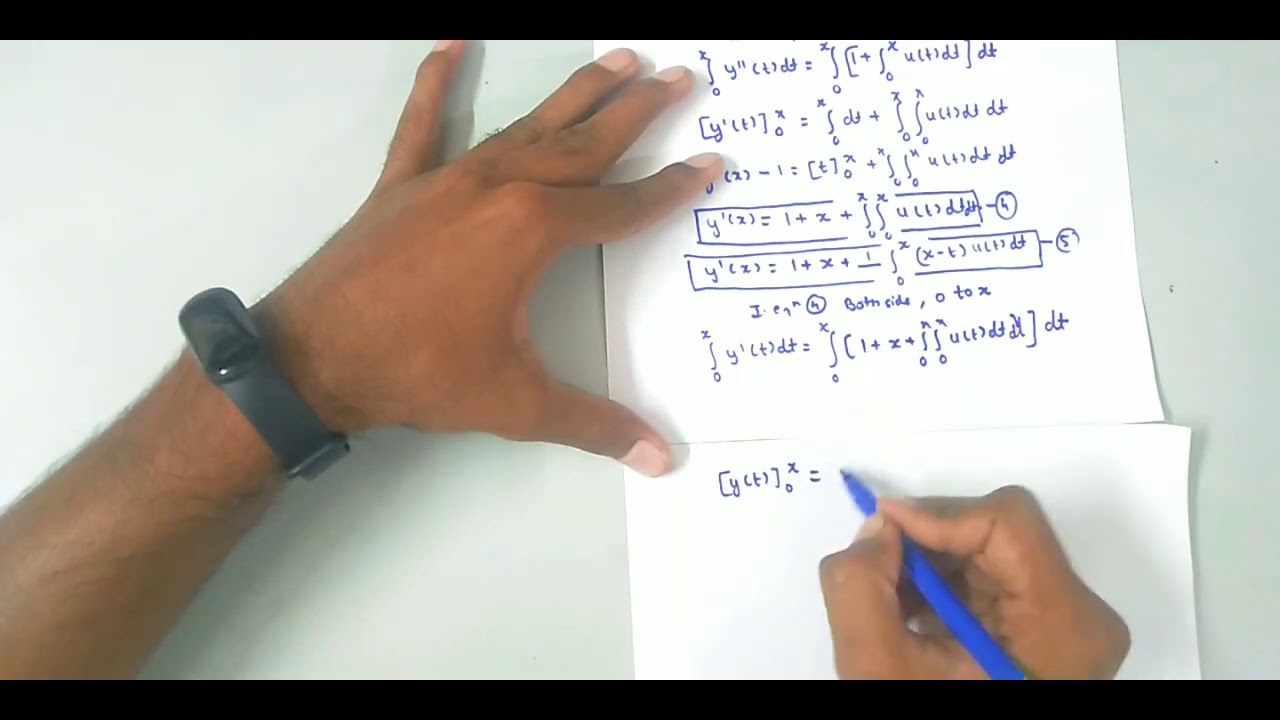 ∫₀ˣ y''(t)dt = ∫₀ˣ [1+ ∫₀ˣ u(t)dt] dt
[y'(t)]₀ˣ = ∫₀ˣ dt + ∫₀ˣ ∫₀ˣ u(t)dt dt
y'(x) - 1 = [t]₀ˣ + ∫₀ˣ ∫₀ˣ u(t)dt dt
y'(x) = 1 + x + ∫₀ˣ ∫₀ˣ u(t)dtdt - ④
y'(x) = 1 + x + 1 ∫₀ˣ (x-t) u(t)dt - ⑤
I. eqⁿ ④ Both side, 0 to x
∫₀ˣ y'(t)dt = ∫₀ˣ [1 + x + ∫₀ˣ ∫₀ˣ u(t)dtdt] dt
[y(t)]₀ˣ =